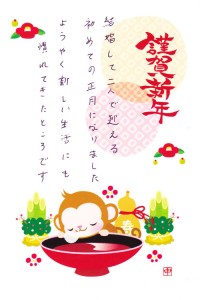 謹賀新年
結婚して二人で迎える
初めての正月になりました
ようやく新しい生活にも
慣れてきたところです
申